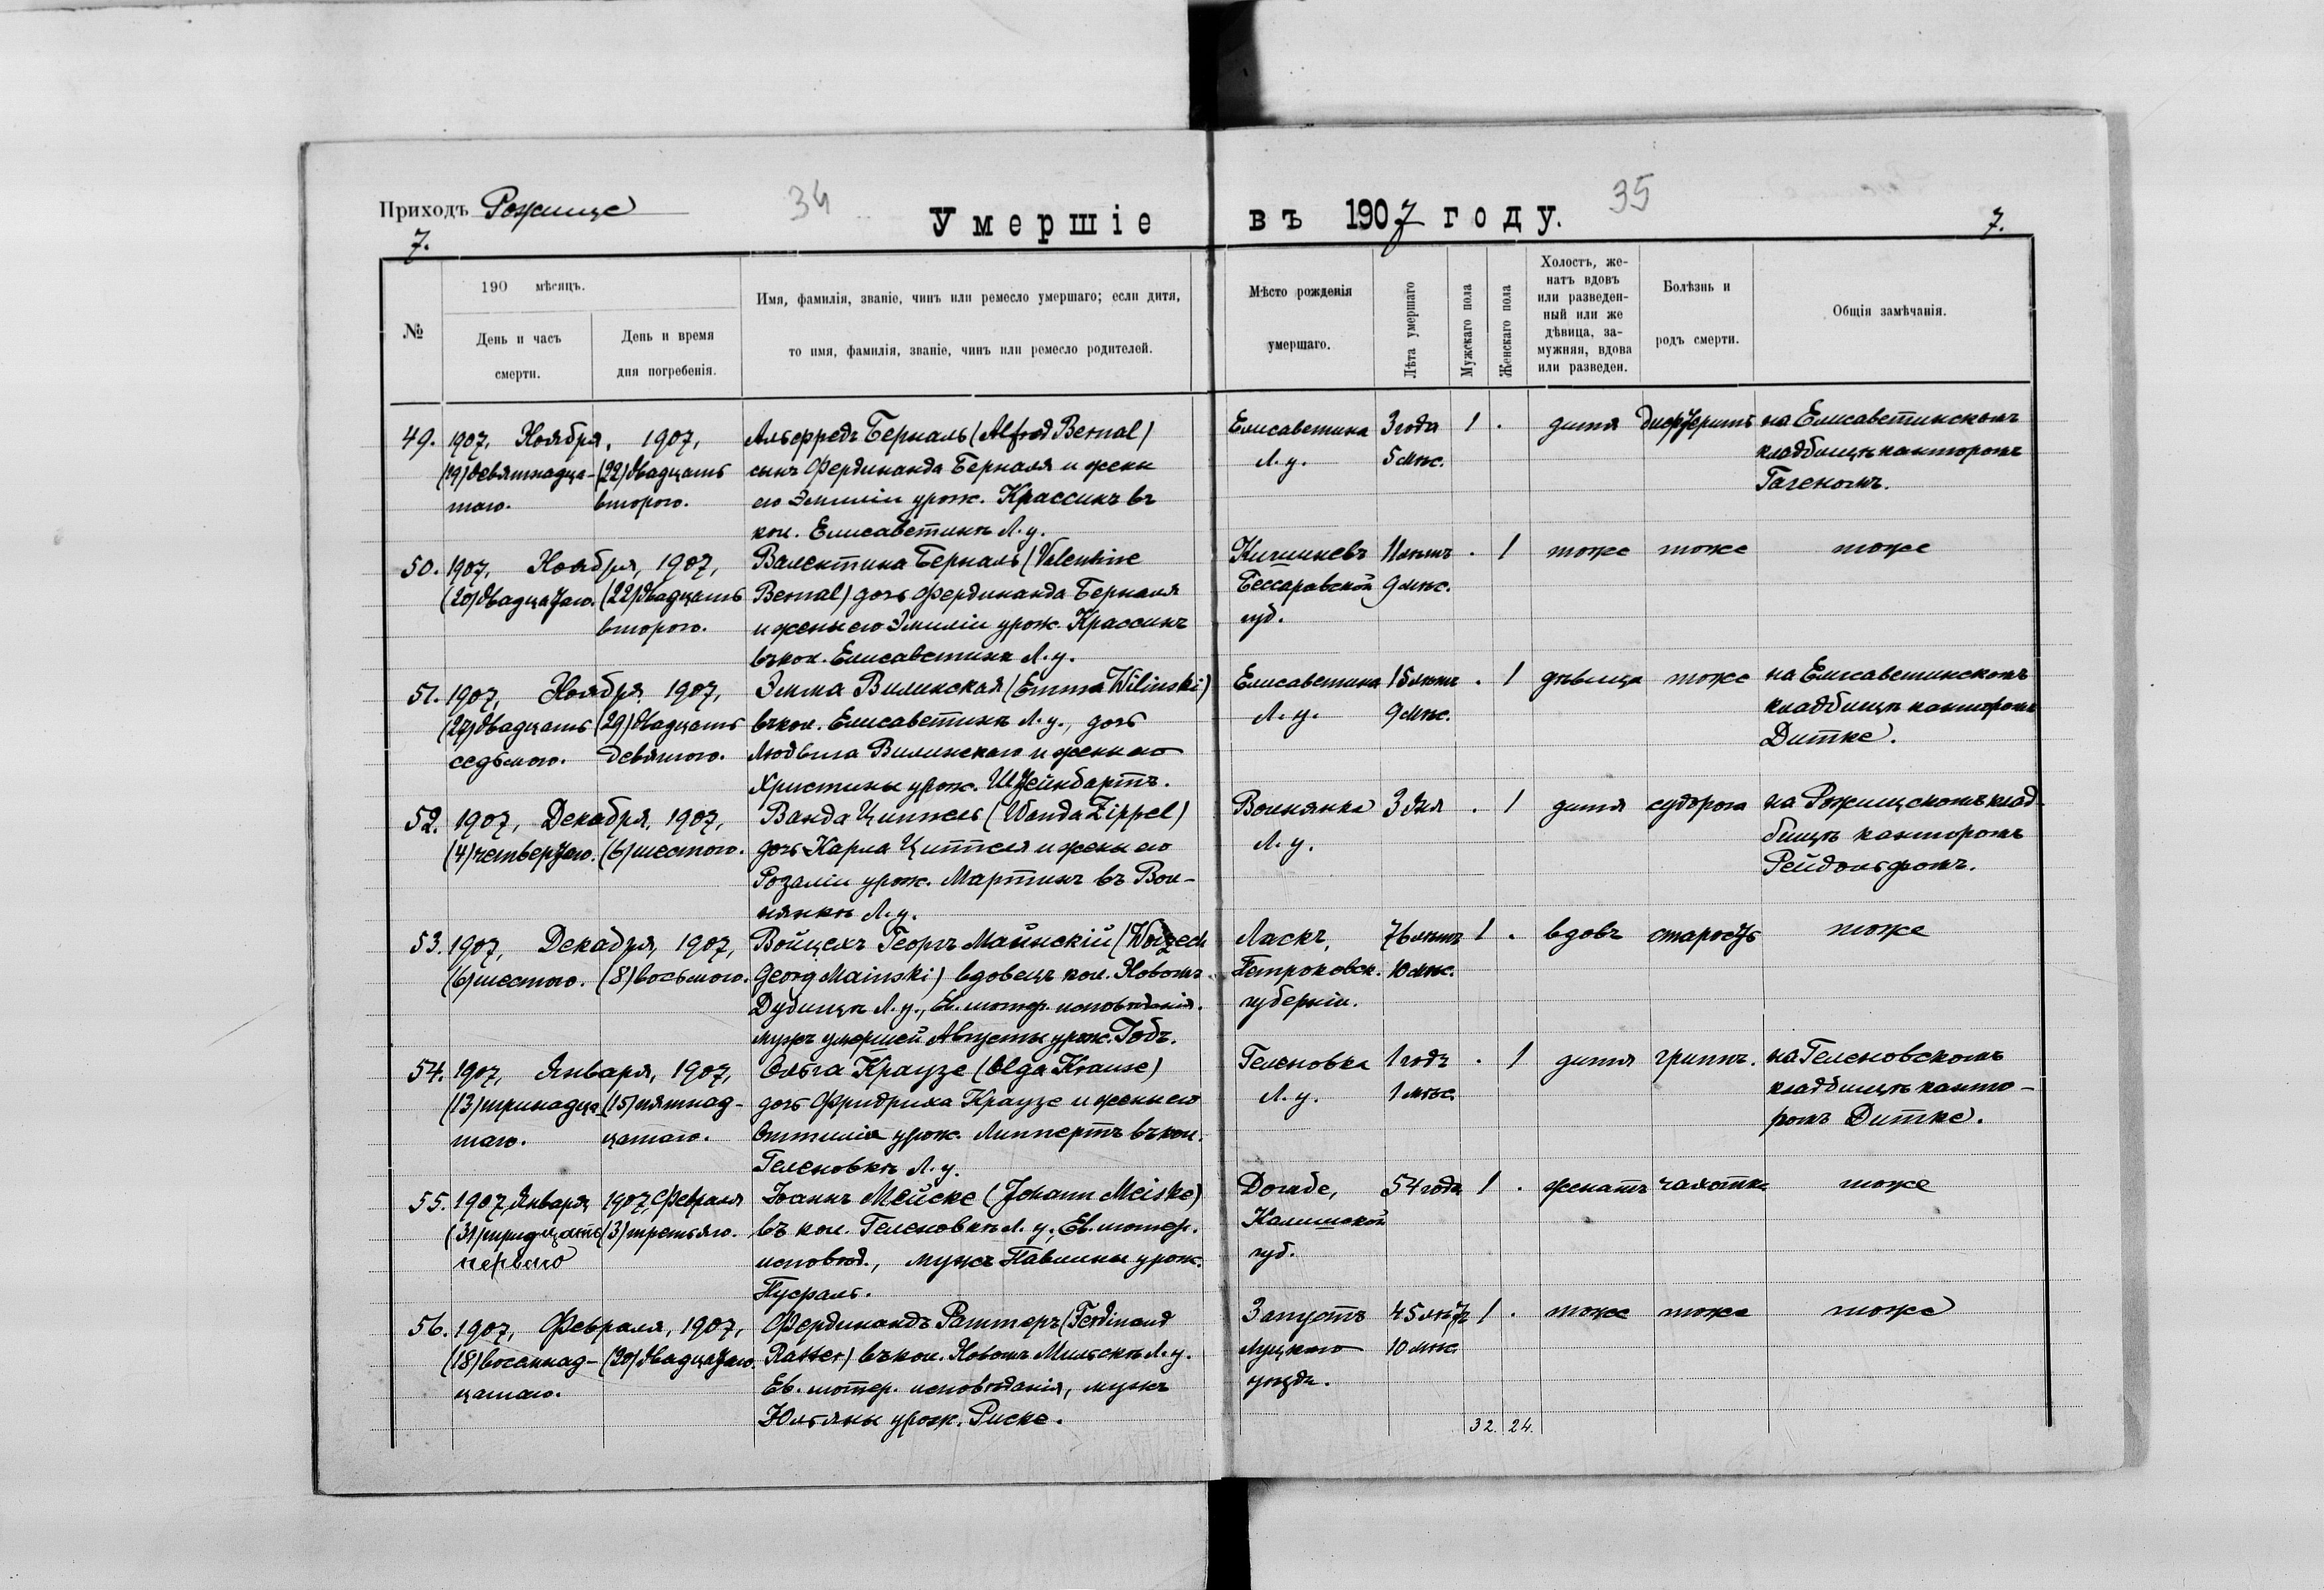 Приходъ Рожище
34
35
Умершіе въ 1907 году.
7.
7.
№
190 мѣсяцъ.
День и часъ смерти.
День и время дня погребенія.
Имя, фамилія, званіе, чинъ или ремесло умершаго; если дитя,
то имя, фамилія, званіе, чинъ или ремесло родителей.
Мѣсто рожденія
умершаго.
Лѣта умершаго
Мужскаго пола
Женскаго пола
Холостъ, же-
натъ вдовъ
или разведен-
ный или же
дѣвица, за-
мужняя, вдова
или разведен.
Болѣзнь и
родъ смерти.
Общія замѣчанія.
49. 1907, Ноября, 1907, Альфредъ Берналь (Alfred Bernal) Елисаветинъ 3 года 1 . дитя дифтеритъ на Елисаветинскомъ
(19) девятнадца- (22) двадцать сынъ Фердинанда Берналя и жены Л. у. 5 мѣс. кладбищѣ канторомъ
таго. второго. его Эмиліи урож. Крассинъ въ Гагеномъ.
кол. Елисаветинѣ Л. у.
50. 1907, Ноября, 1907, Валентина Берналь (Valentine Кишиневъ 11 лѣтъ . 1 тоже тоже тоже
(20) двадцатаго. (22) двадцать Bernal) дочь Фердинанда Берналя Бессаравской 9 мѣс.
второго. и жены его Эмиліи урож. Крассинъ губ.
въ кол. Елисаветинѣ Л. у.
51. 1907, Ноября, 1907, Эмма Вилинская (Emma Wilinski) Елисаветинъ 15 лѣтъ . 1 дѣвица тоже на Елисаветинскомъ
(27) двадцать (29) двадцать въ кол. Елисаветинѣ Л. у., дочь Л. у. 9 мѣс. кладбищѣ канторомъ
седьмого. девятого. Людвига Вилинскаго и жены его Дитке.
Христины урож. Штейнбартъ.
52. 1907, Декабря, 1907, Ванда Циппель (Wanda Zippel) Волнянка 3 дня . 1 дитя судорога на Рожищскомъ клад-
(4) четвертаго. (6) шестого. дочь Карла Циппеля и жены его Л. у. бищѣ канторомъ
Розаліи урож. Мартинъ въ Вол- Рейдольфомъ.
нянкѣ Л. у.
53. 1907, Декабря, 1907, Войцехъ Георгъ Майнскій (Woizech Ласкъ, 76 лѣтъ 1 . вдовъ старость тоже
(6) шестого. (8) восьмого. Georg Mainski) вдовецъ кол. Новомъ Петроковск. 10 мѣс.
Дубищѣ Л. у., Ев. лютер. исповѣданія. губерніи.
мужъ умершей Августы урож. Гобъ.
54. 1907, Января, 1907, Ольга Краузе (Olga Krause) Геленовка 1 годъ . 1 дитя гриппъ. на Геленовскомъ
(13) тринадца- (15) пятнад- дочь Фридриха Краузе и жены его Л. у. 1 мѣс. кладбищѣ канто-
таго. цатаго. Оттиліи урож. Липпертъ въ кол. ромъ Дитке.
Геленовкѣ Л. у.
55. 1907, Января 1907, Февраля Іоаннъ Мейске (Johann Meiske) Домбе, 54 года 1 . женатъ чахотка тоже
(31) тридцать (3) третьяго. въ кол. Геленовкѣ Л. у., Ев. лютер. Калишской
перваго исповѣд., мужъ Павлины урож. губ.
Пуфаль.
56. 1907, Февраля, 1907, Фердинандъ Раттеръ (Ferdinand Запустъ 45 лѣтъ 1 . тоже тоже тоже
(18) восемнад- (20) двадцатаго. Ratter) въ кол. Новомъ Мильскѣ Л. у. Луцкаго 10 мѣс.
цатаго. Ев. лютер. исповѣданія, мужъ уѣзда.
Юльяны урож. Риске.
32. 24.